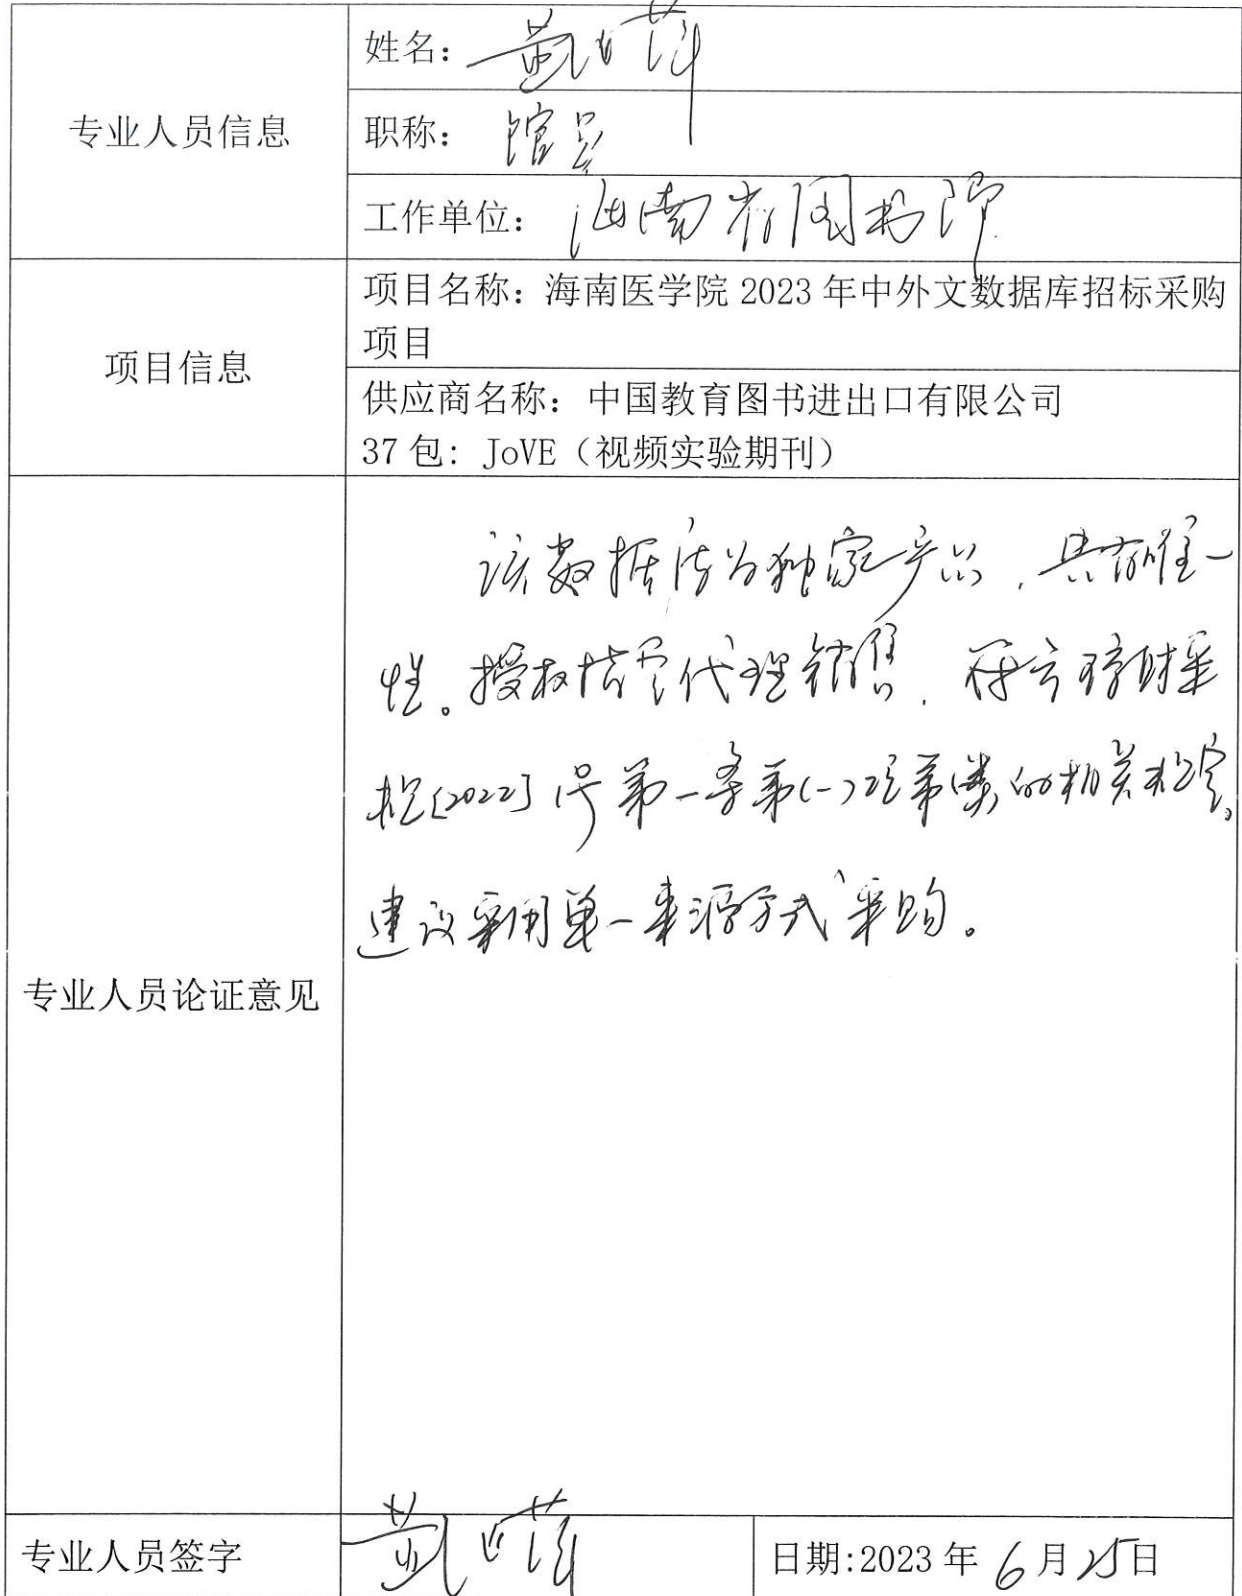 专业人员信息
姓名：
职称： 馆员
工作单位： 海南省图书馆
项目信息
项目名称：海南医学院 2023 年中外文数据库招标采购
项目
供应商名称：中国教育图书进出口有限公司
37 包：JoVE（视频实验期刊）
专业人员论证意见
该数据库为独家产品，具有唯一
性。授权指定代理销售，符合琼财采
规[2022]1号第一条第(一)项第 类的相关规定。
建议采用单一来源方式采购。
专业人员签字
日期:2023 年 6 月 25 日